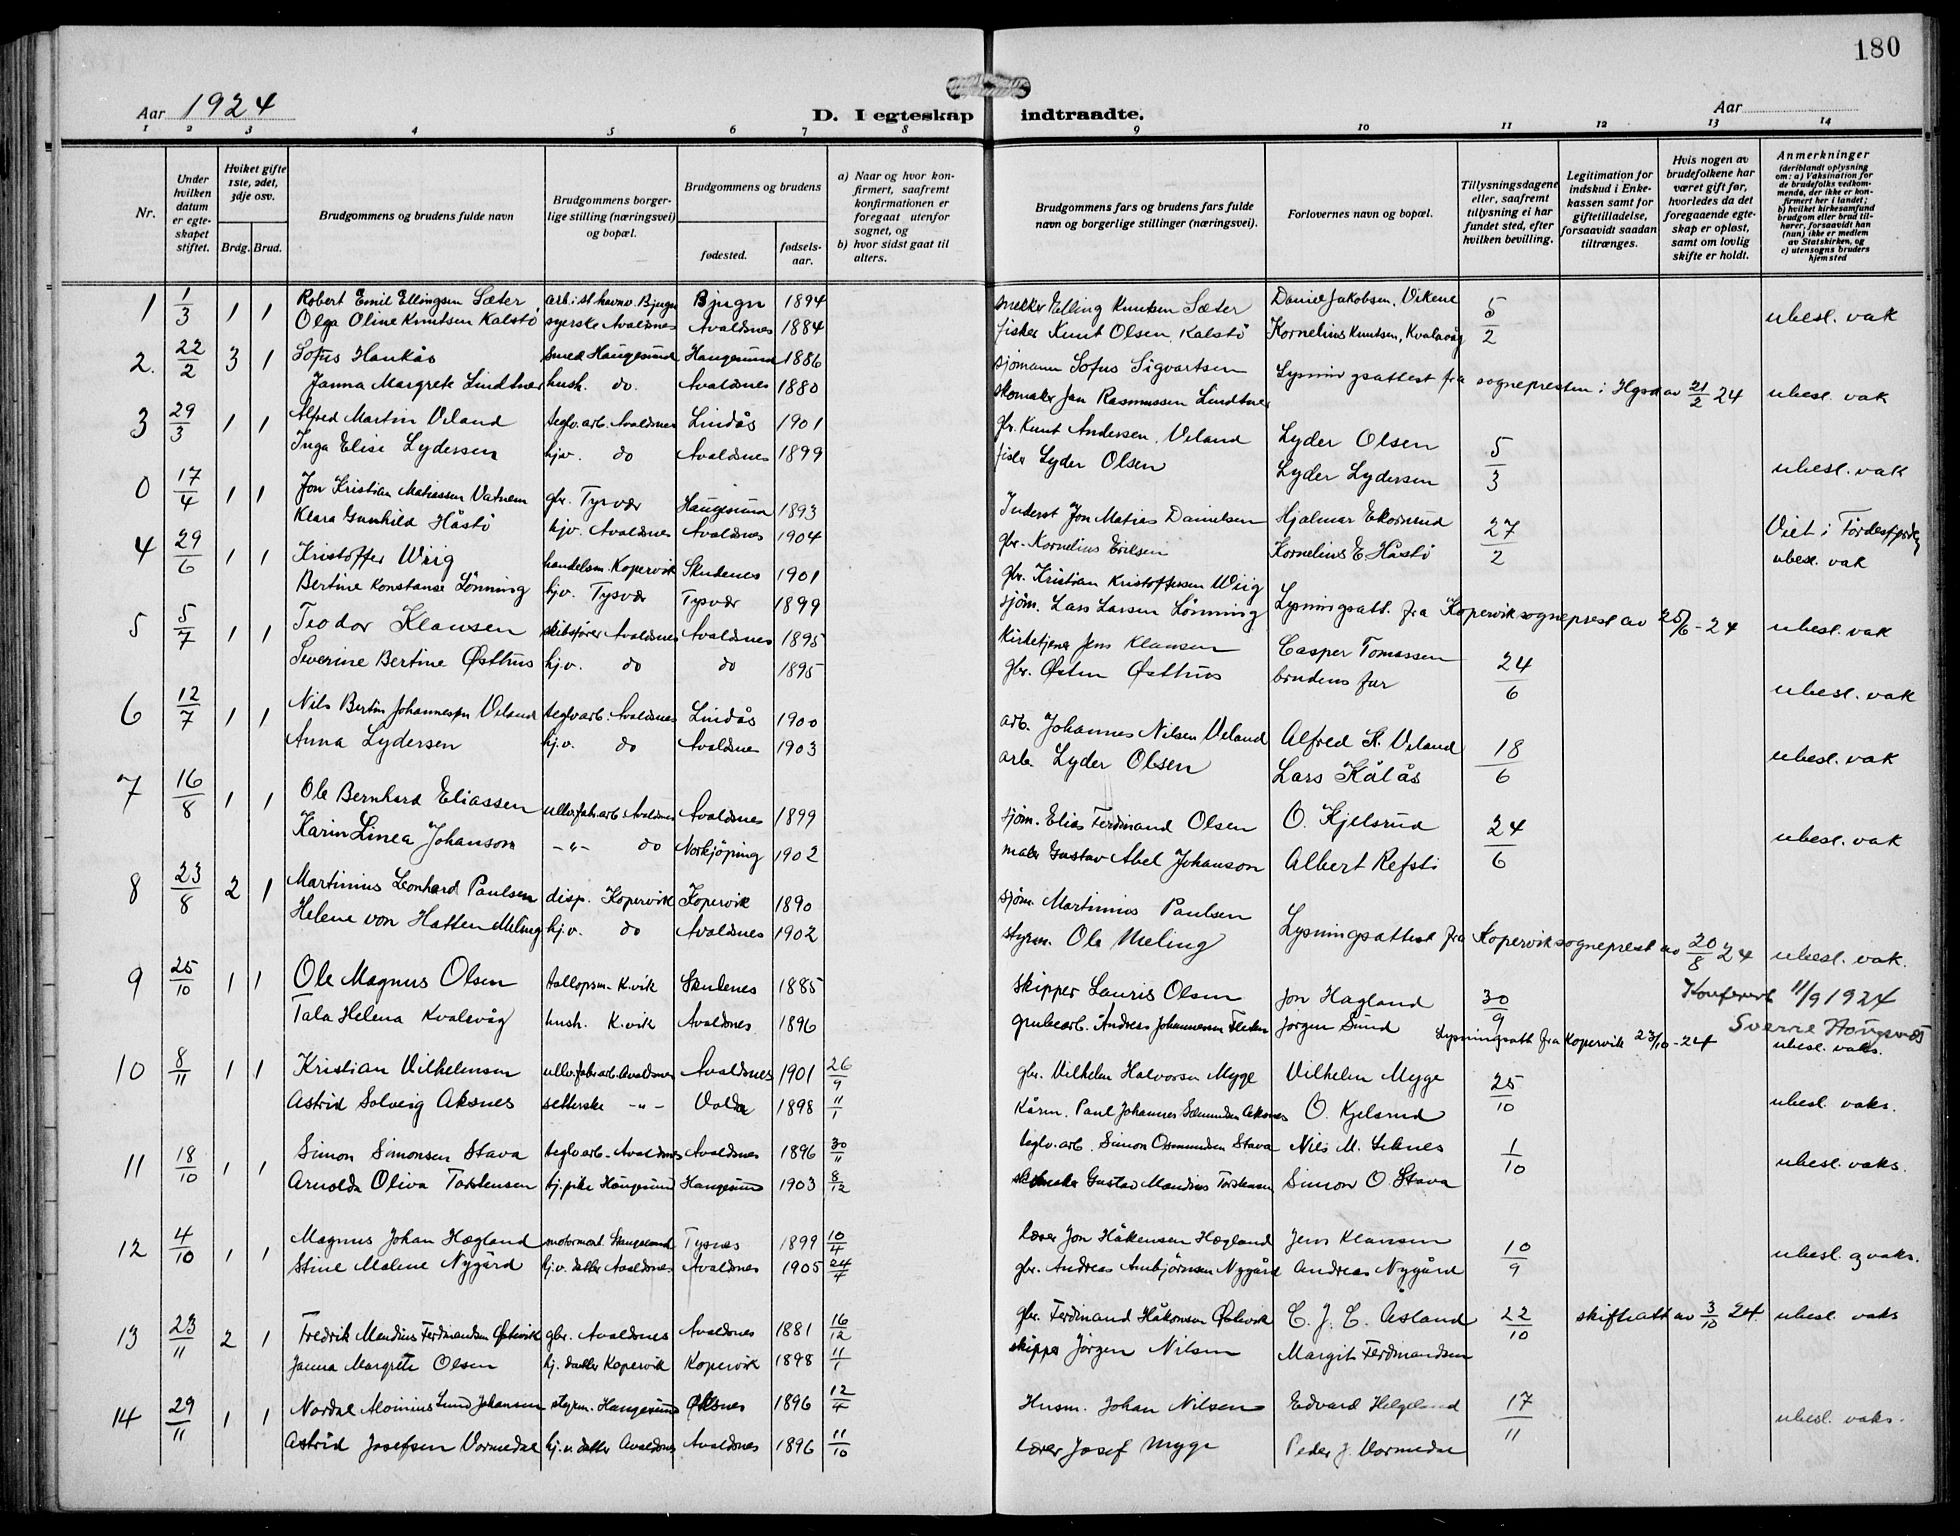 180
Aar 1924
D. I egteskap indtraadte.
Aar
1 2 3 4 5 6 7 8 9 10 11 12 13 14
Nr.
Under hvilken datum er egteskapet stiftet.
Hviket gifte 1ste, 2det, 3dje osv.
Brdg. Brud.
Brudgommens og brudens fulde navn
Brudgommens borgerlige stilling (næringsvei) og bopæl.
Brudgommens og brudens
fødested.
fødselsaar.
a) Naar og hvor konfirmert, saafremt konfirmationen er foregaat utenfor sognet, og
b) hvor sidst gaat til alters.
Brudgommens fars og brudens fars fulde navn og borgerlige stillinger (næringsvei).
Forlovernes navn og bopæl.
Tillysningsdagene eller, saafremt tillysning ei har fundet sted, efter hvilken bevilling.
Legitimation for indskud i Enkekassen samt for giftetilladelse, forsaavidt saadan tiltrænges.
Hvis nogen av brudefolkene har været gift før, hvorledes da det foregaaende egteskap er opløst, samt om lovlig skifte er holdt.
Anmerkninger (deriblandt oplysning om: a) Vaksination for de brudefolks vedkommende, der ikke er konfirmert her i landet; b) hvilket kirkesamfund brudgom eller brud tilhører, forsaavidt han (hun) ikke er medlem av Statskirken, og c) utensogns bruders hjemsted
1 1/3 1 1 Robert Emil Ellingsen Sæter arb. i st. havnv. Bjugn Bjugn 1894 snekker Elling Knutsen Sæter Daniel Jakobsen, Vikene 5/2 ubesl. vak
Olga Oline Knutsen Kalstø syerske Avaldsnes Avaldsnes 1884 fisker Knut Olsen, Kalstø Kornelius Knutsen, Kvalavåg
2. 22/2 3 1 Sofus Haukås smed Haugesund Haugesund 1886 sjømann Sofus Sigvartsen Lysningsattest fra sognepresten i Hgsd av 21/2 24 ubesl. vak
Janna Margrete Lindtner hush. do. Avaldsnes 1880 skomaker Jan Rasmussen Lindtner
3 29/3 1 1 Alfred Martin Veland teglv.arb. Avaldsnes Lindås 1901 gbr. Knut Andersen Veland Lyder Olsen 5/3 ubesl. vak
Inga Elise Lydersen hjv. do Avaldsnes 1899 fisker Lyder Olsen Lyder Lydersen
0 17/4 1 1 Jon Kristian Matiassen Vatnem gbr. Tysvær Haugesund 1893 Inderst Jon Matias Danielsen Hjalmar Ekornrud 27/2 Viet i Førdesfjorden
Klara Gunhild Håstø hjv. Avaldsnes Avaldsnes 1904 gbr. Kornelius Eriksen Kornelius E. Håstø ubesl. vak
4 29/6 1 1 Kristoffer Wiig handelsm. Kopervik Skudenes 1901 gbr. Kristian Kristoffersen Wiig Lysningsatt. fra Kopervik sogneprest av 25/6-24 ubesl. vak
Bertine Konstanse Lønning hjv. Tysvær Tysvær 1899 sjøm. Lars Larsen Lønning
5 5/7 1 1 Teodor Klausen skibsfører Avaldsnes Avaldsnes 1895 Kirketjener Jens Klausen Casper Tomassen 24/6 ubesl. vak
Severine Bertine Østhus hj.v. do do 1895 gbr. Østen Østhus brudens far
6 12/7 1 1 Nils Bertin Johannessen Veland teglv arb. Avaldsnes Lindås 1900 arb. Johannes Nilsen Veland Alfred K. Veland 18/6 ubesl. vak
Anna Lydersen hj.v. do Avaldsnes 1903 arb. Lyder Olsen Lars Kålås
7 16/8 1 1 Ole Bernhard Eliassen ullv.fabr.arb. Avaldsnes Avaldsnes 1899 sjøm. Elias Ferdinand Olsen O. Kjelsrud 24/6 ubesl. vak
Karin Linea Johanson -"- do Norkjöping 1902 maler Gustav Abel Johanson Albert Refsti
8 23/8 2 1 Martinius Leonhard Paulsen disp. Kopervik Kopervik 1890 sjøm. Martinius Paulsen Lysningsattest fra Kopervik sogneprest av 20/8 24 ubesl. vak.
Helene von Hatten Meling hj.v. do Avaldsnes 1902 styrm. Ole Meling
9 25/10 1 1 Ole Magnus Olsen tallopsm. K.vik Skudenes 1885 skipper Lauris Olsen Jon Hagland 30/9 Konferert 11/9 1924
Tala Helena Kvalavåg hush. K.vik Avaldsnes 1896 grubearb. Andreas Johannessen Jørgen Sund Lysningsatt fra Kopervik 23/10-24 Sverre
ubesl. vaks.
10 8/11 1 1 Kristian Vilhelmsen ullv.fabr.arb. Avaldsnes Avaldsnes 1901 26/9 gbr. Vilhelm Halvorsen Myge Vilhelm Myge 25/10 ubesl. vaks.
Astrid Solveig Aksnes setterske -"- Volda 1898 11/1 Kårm. Paul Johannes Aksnes O. Kjelsrud
11 18/10 1 1 Simon Simonsen Stava teglv arb. Avaldsnes Avaldsnes 1896 30/11 teglv.arb. Simon Osmundsen Stava Nils M. 1/10 ubesl. vaks.
Arnolda Oliva Torstensen hj.pike Haugesund Haugesund 1903 8/12 skomaker Gustav Mandius Torstensen Simon O. Stava
12 4/10 1 1 Magnus Johan Hægland motormont. Tysnes 1899 10/4 lærer Jon Håkensen Hægland Jens Klausen 10/9 ubesl. og vaks.
Stine Malene Nygård hj.v. datter Avaldsnes Avaldsnes 1905 24/4 gbr. Andreas Ambjørnsen Nygård Andreas Nygård
13 23/11 2 1 Fredrik Mendius Ferdinandsen Østevik gbr. Avaldsnes Avaldsnes 1881 16/12 gbr. Ferdinand Håkonsen Østevik C. J. C. Asland 22/10 skifteatt av 3/10 24. ubesl. vaks
Janna Margrete Olsen hj. datter Kopervik Kopervik 1898 11/1 skipper Jørgen Nilsen Margit Ferdinandsen
14 29/11 1 1 Nordal Lund Johansen styrm. Haugesund Øksnes 1896 12/4 Husm. Johan Nilsen Edvard Helgeland 17/11 ubesl. vaks.
Astrid Josefsen Vormedal hj.v. datter Avaldsnes Avaldsnes 1896 11/10 lærer Josef Myge Peder J. Vormedal